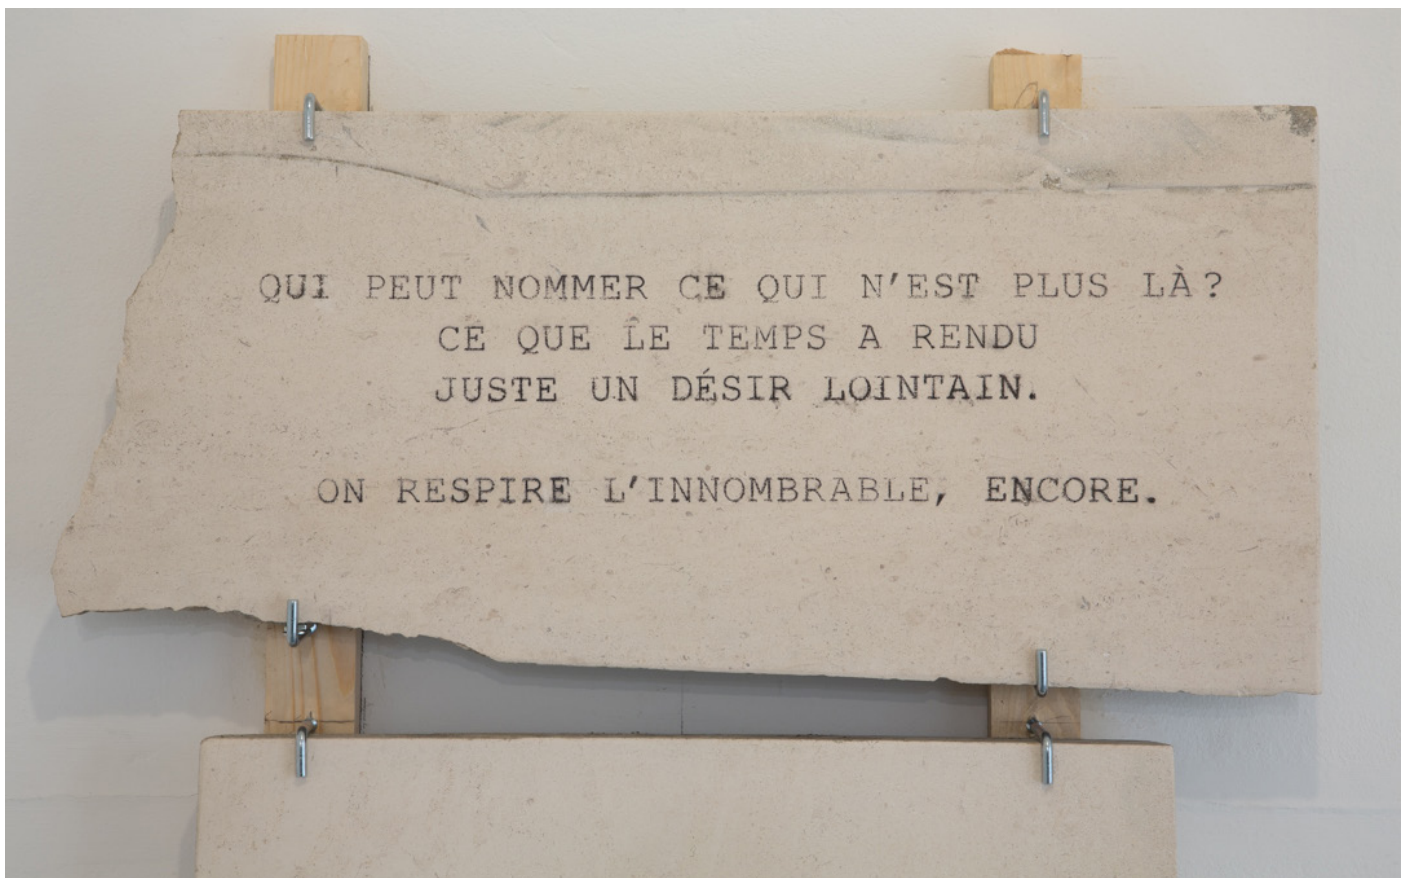 QUI PEUT NOMMER CE QUI N'EST PLUS LÀ?
CE QUE LE TEMPS A RENDU
JUSTE UN DÉSIR LOINTAIN.
ON RESPIRE L'INNOMBRABLE, ENCORE.